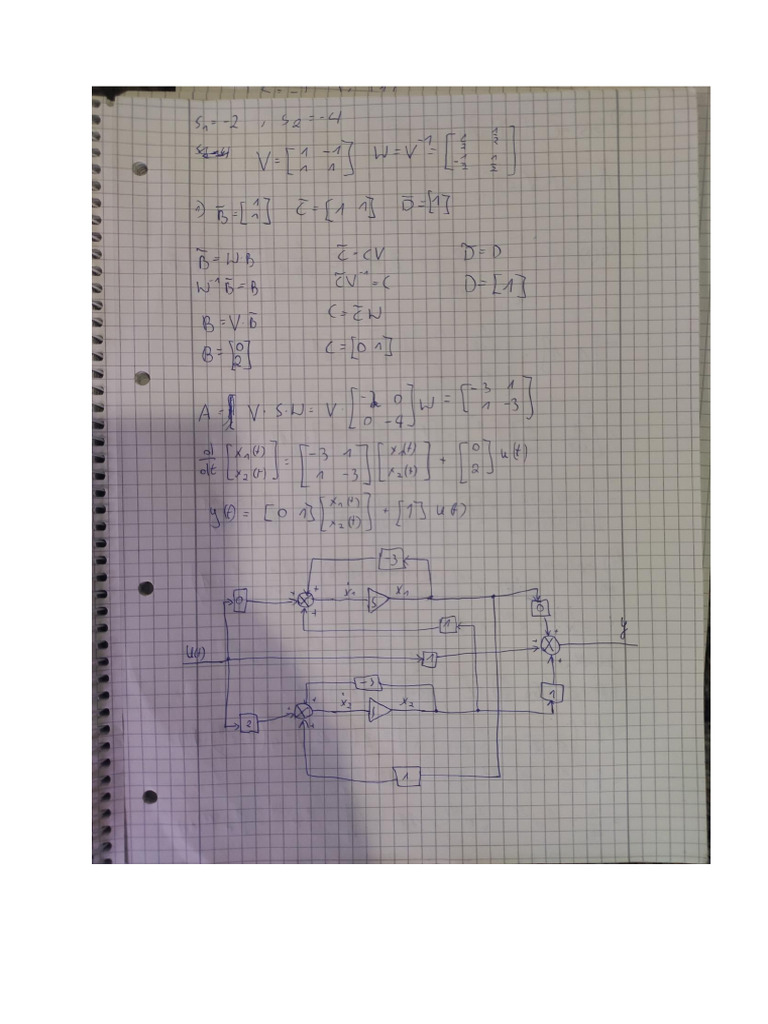 s₁=-2 , s₂=-4
V=[1 -1; 1 1] W=V⁻¹=[1/2 1/2; -1/2 1/2]
1) B̄=[1; 1] C̄=[1 1] D̄=[1]
B̄=WB C̄=CV D̄=D
W⁻¹B̄=B C̄V⁻¹=C D=[1]
B=V·B̄ C=C̄W
B=[0; 2] C=[0 1]
A= V·S·W= V·[-2 0; 0 -4]W = [-3 1; 1 -3]
d/dt [x₁(t); x₂(t)]=[-3 1; 1 -3][x₁(t); x₂(t)]+[0; 2]u(t)
y(t)= [0 1][x₁(t); x₂(t)]+[1] u(t)
-3
0 ẋ₁ ∫ x₁ 0
1
u(t) 1 y
-3
2 ẋ₂ ∫ x₂ 1
1